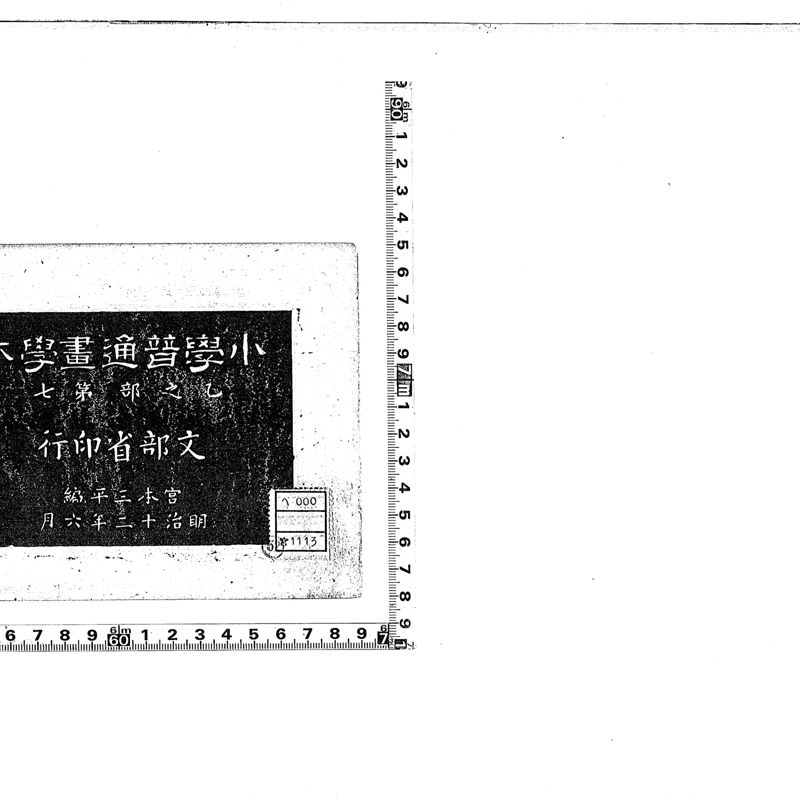 小學普通畫學本
乙之部第七
文部省印行
宮本三平編
明治十二年六月
へ 000
1113
5
6 7 8 9 60 1 2 3 4 5 6 7 8 9
6m
90 1 2 3 4 5 6 7 8 9
6m
1 2 3 4 5 6 7 8 9